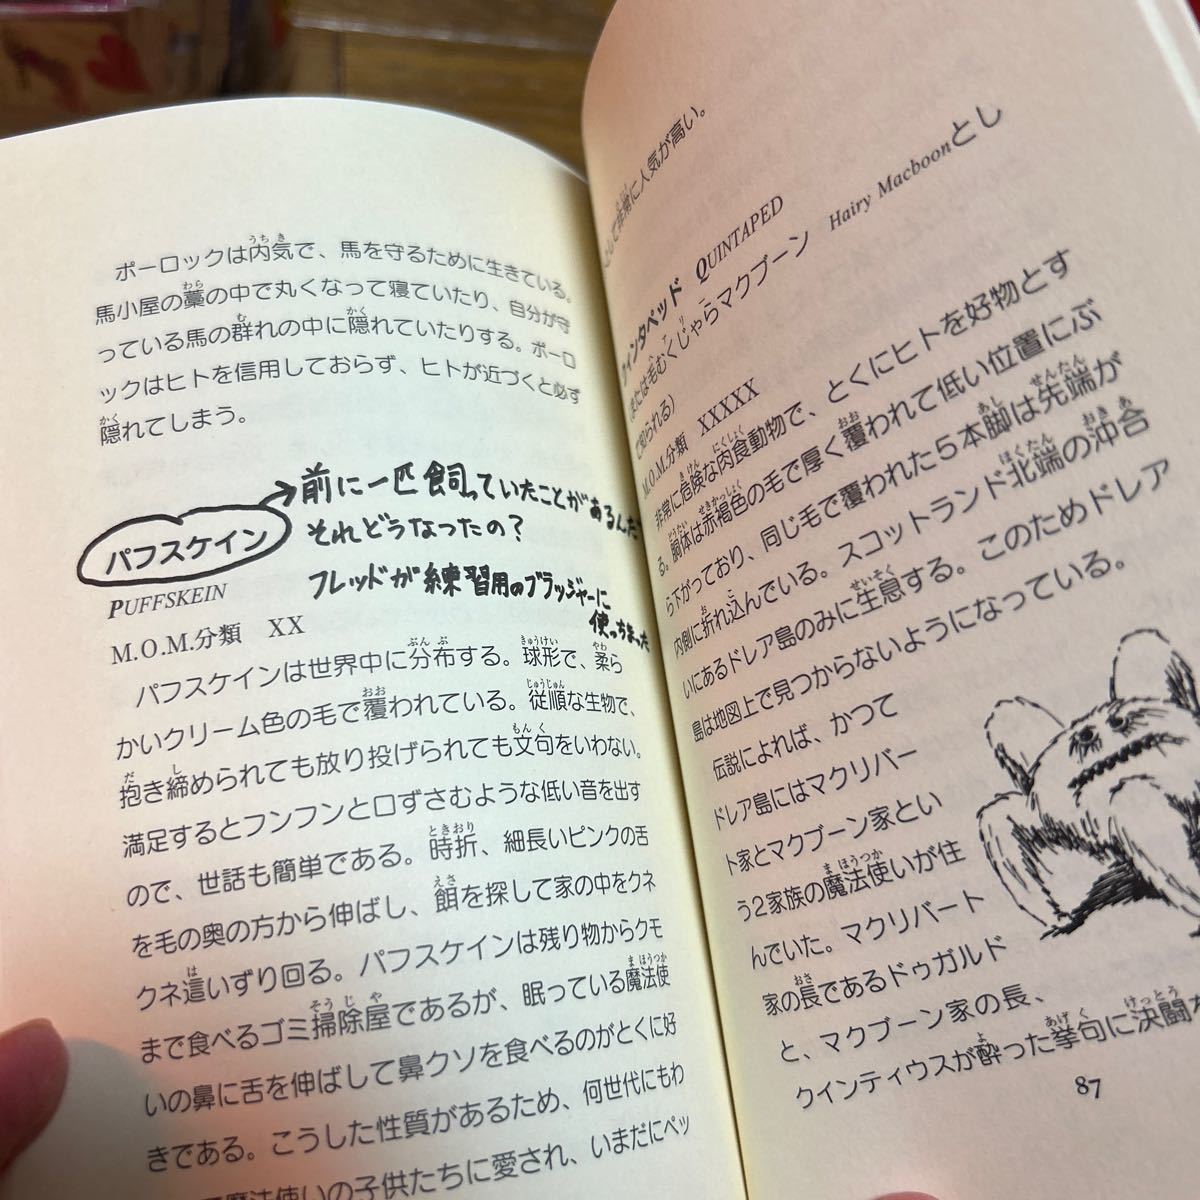 ポーロックは内気で、馬を守るために生きている。
馬小屋の藁の中で丸くなって寝ていたり、自分が守
っている馬の群れの中に隠れていたりする。ポーロ
ックはヒトを信用しておらず、ヒトが近づくと必ず
隠れてしまう。
パフスケイン
前に一匹飼っていたことがあるんだ
それどうなったの？
フレッドが練習用のブラッジャーに
使っちまった
PUFFSKEIN
M.O.M.分類 XX
パフスケインは世界中に分布する。球形で、柔ら
かいクリーム色の毛で覆われている。従順な生物で、
抱き締められても放り投げられても文句をいわない。
満足するとフンフンと口ずさむような低い音を出す
ので、世話も簡単である。時折、細長いピンクの舌
を毛の奥の方から伸ばし、餌を探して家の中をクネ
クネ這いずり回る。パフスケインは残り物からクモ
まで食べるゴミ掃除屋であるが、眠っている魔法使
いの鼻に舌を伸ばして鼻クソを食べるのがとくに好
きである。こうした性質があるため、何世代にもわ
魔法使いの子供たちに愛され、いまだにペッ
として非常に人気が高い。
クインタペッド QUINTAPED
(または毛むくじゃらマクブーン Hairy Macboonとし
て知られる)
M.O.M.分類 XXXXX
非常に危険な肉食動物で、とくにヒトを好物とす
る。胴体は赤褐色の毛で厚く覆われて低い位置にぶ
ら下がっており、同じ毛で覆われた5本脚は先端が
内側に折れ込んでいる。スコットランド北端の沖合
いにあるドレア島のみに生息する。このためドレア
島は地図上で見つからないようになっている。
伝説によれば、かつて
ドレア島にはマクリバー
ト家とマクブーン家とい
う2家族の魔法使いが住
んでいた。マクリバート
家の長であるドゥガルド
と、マクブーン家の長、
クインティウスが酔った挙句に決闘
87